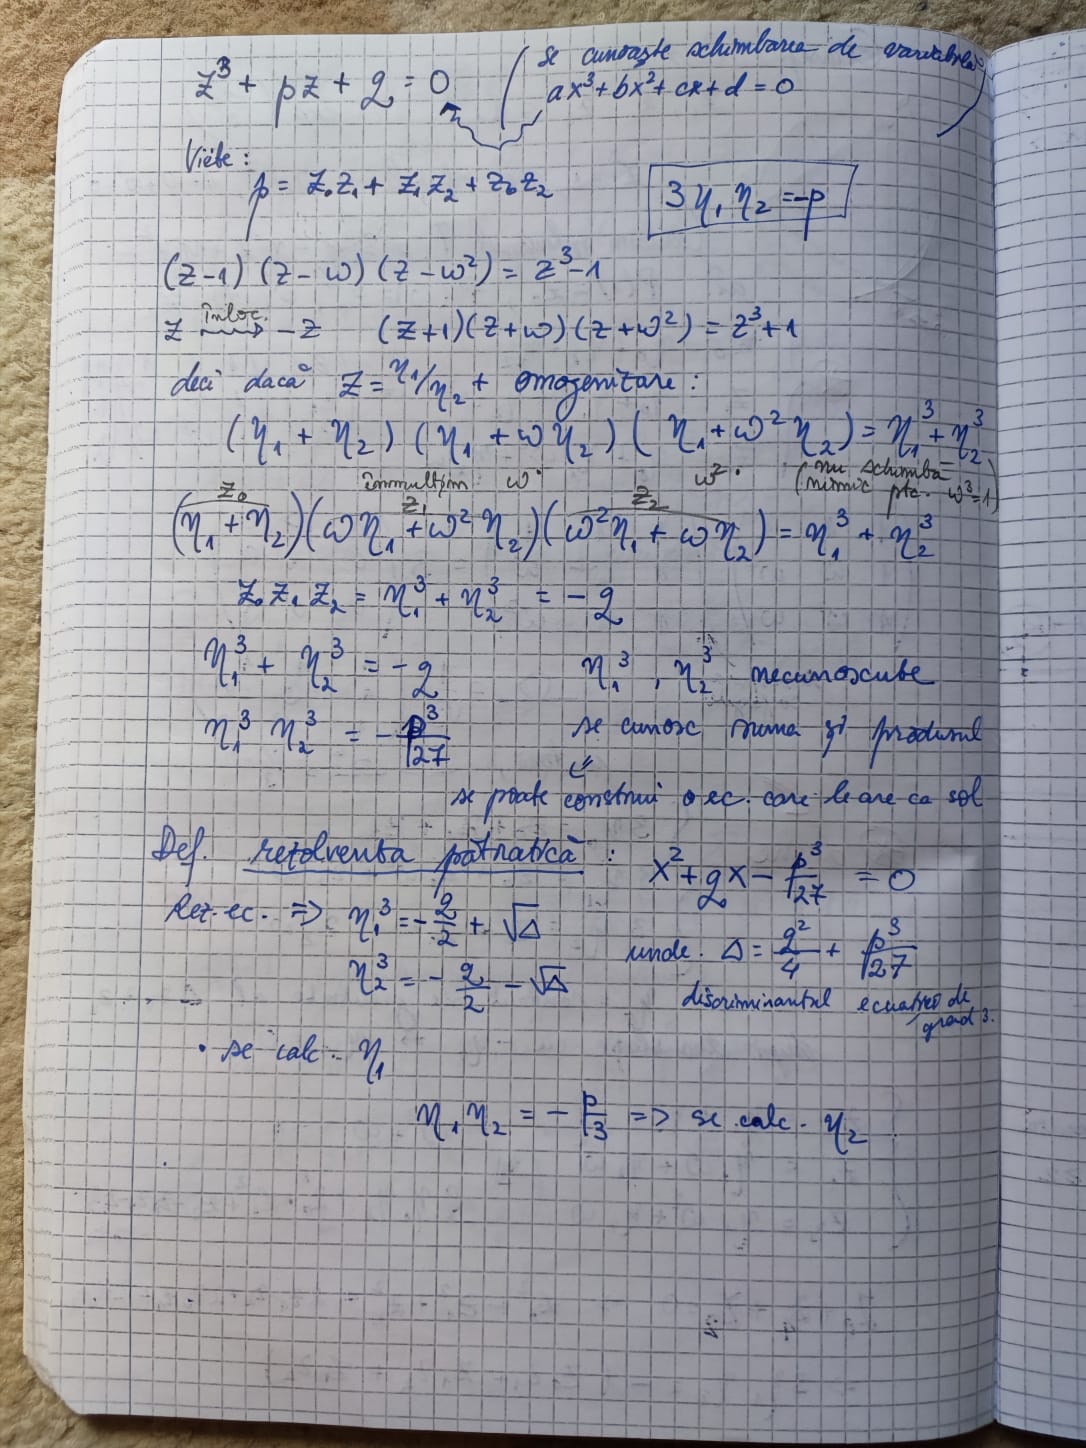 z³ + pz + q = 0
se cunoaște schimbarea de variabilă
ax³ + bx² + cx + d = 0
Viète:
p = z₀z₁ + z₁z₂ + z₀z₂
3η₁η₂ = -p
(z-1)(z-ω)(z-ω²) = z³-1
z înloc. ⇝ -z (z+1)(z+ω)(z+ω²) = z³+1
deci dacă z = η₁/η₂ + omogenizare:
(η₁ + η₂)(η₁ + ωη₂)(η₁ + ω²η₂) = η₁³ + η₂³
înmulțim ω· ω²· (nu schimbă nimic ptc. ω³=1)
z₀ z₁ z₂
(η₁ + η₂)(ωη₁ + ω²η₂)(ω²η₁ + ωη₂) = η₁³ + η₂³
z₀z₁z₂ = η₁³ + η₂³ = -q
η₁³ + η₂³ = -q η₁³, η₂³ necunoscute
η₁³ η₂³ = -p³/27 se cunosc suma și produsul
⇙
se poate construi o ec. care le are ca sol
Def. rezolventa pătratică: X² + qX - p³/27 = 0
Rez. ec. ⇒ η₁³ = -q/2 + √Δ
unde Δ = q²/4 + p³/27
η₂³ = -q/2 - √Δ
discriminantul ecuației de grad 3.
• se calc. η₁
η₁η₂ = -p/3 ⇒ se calc. η₂